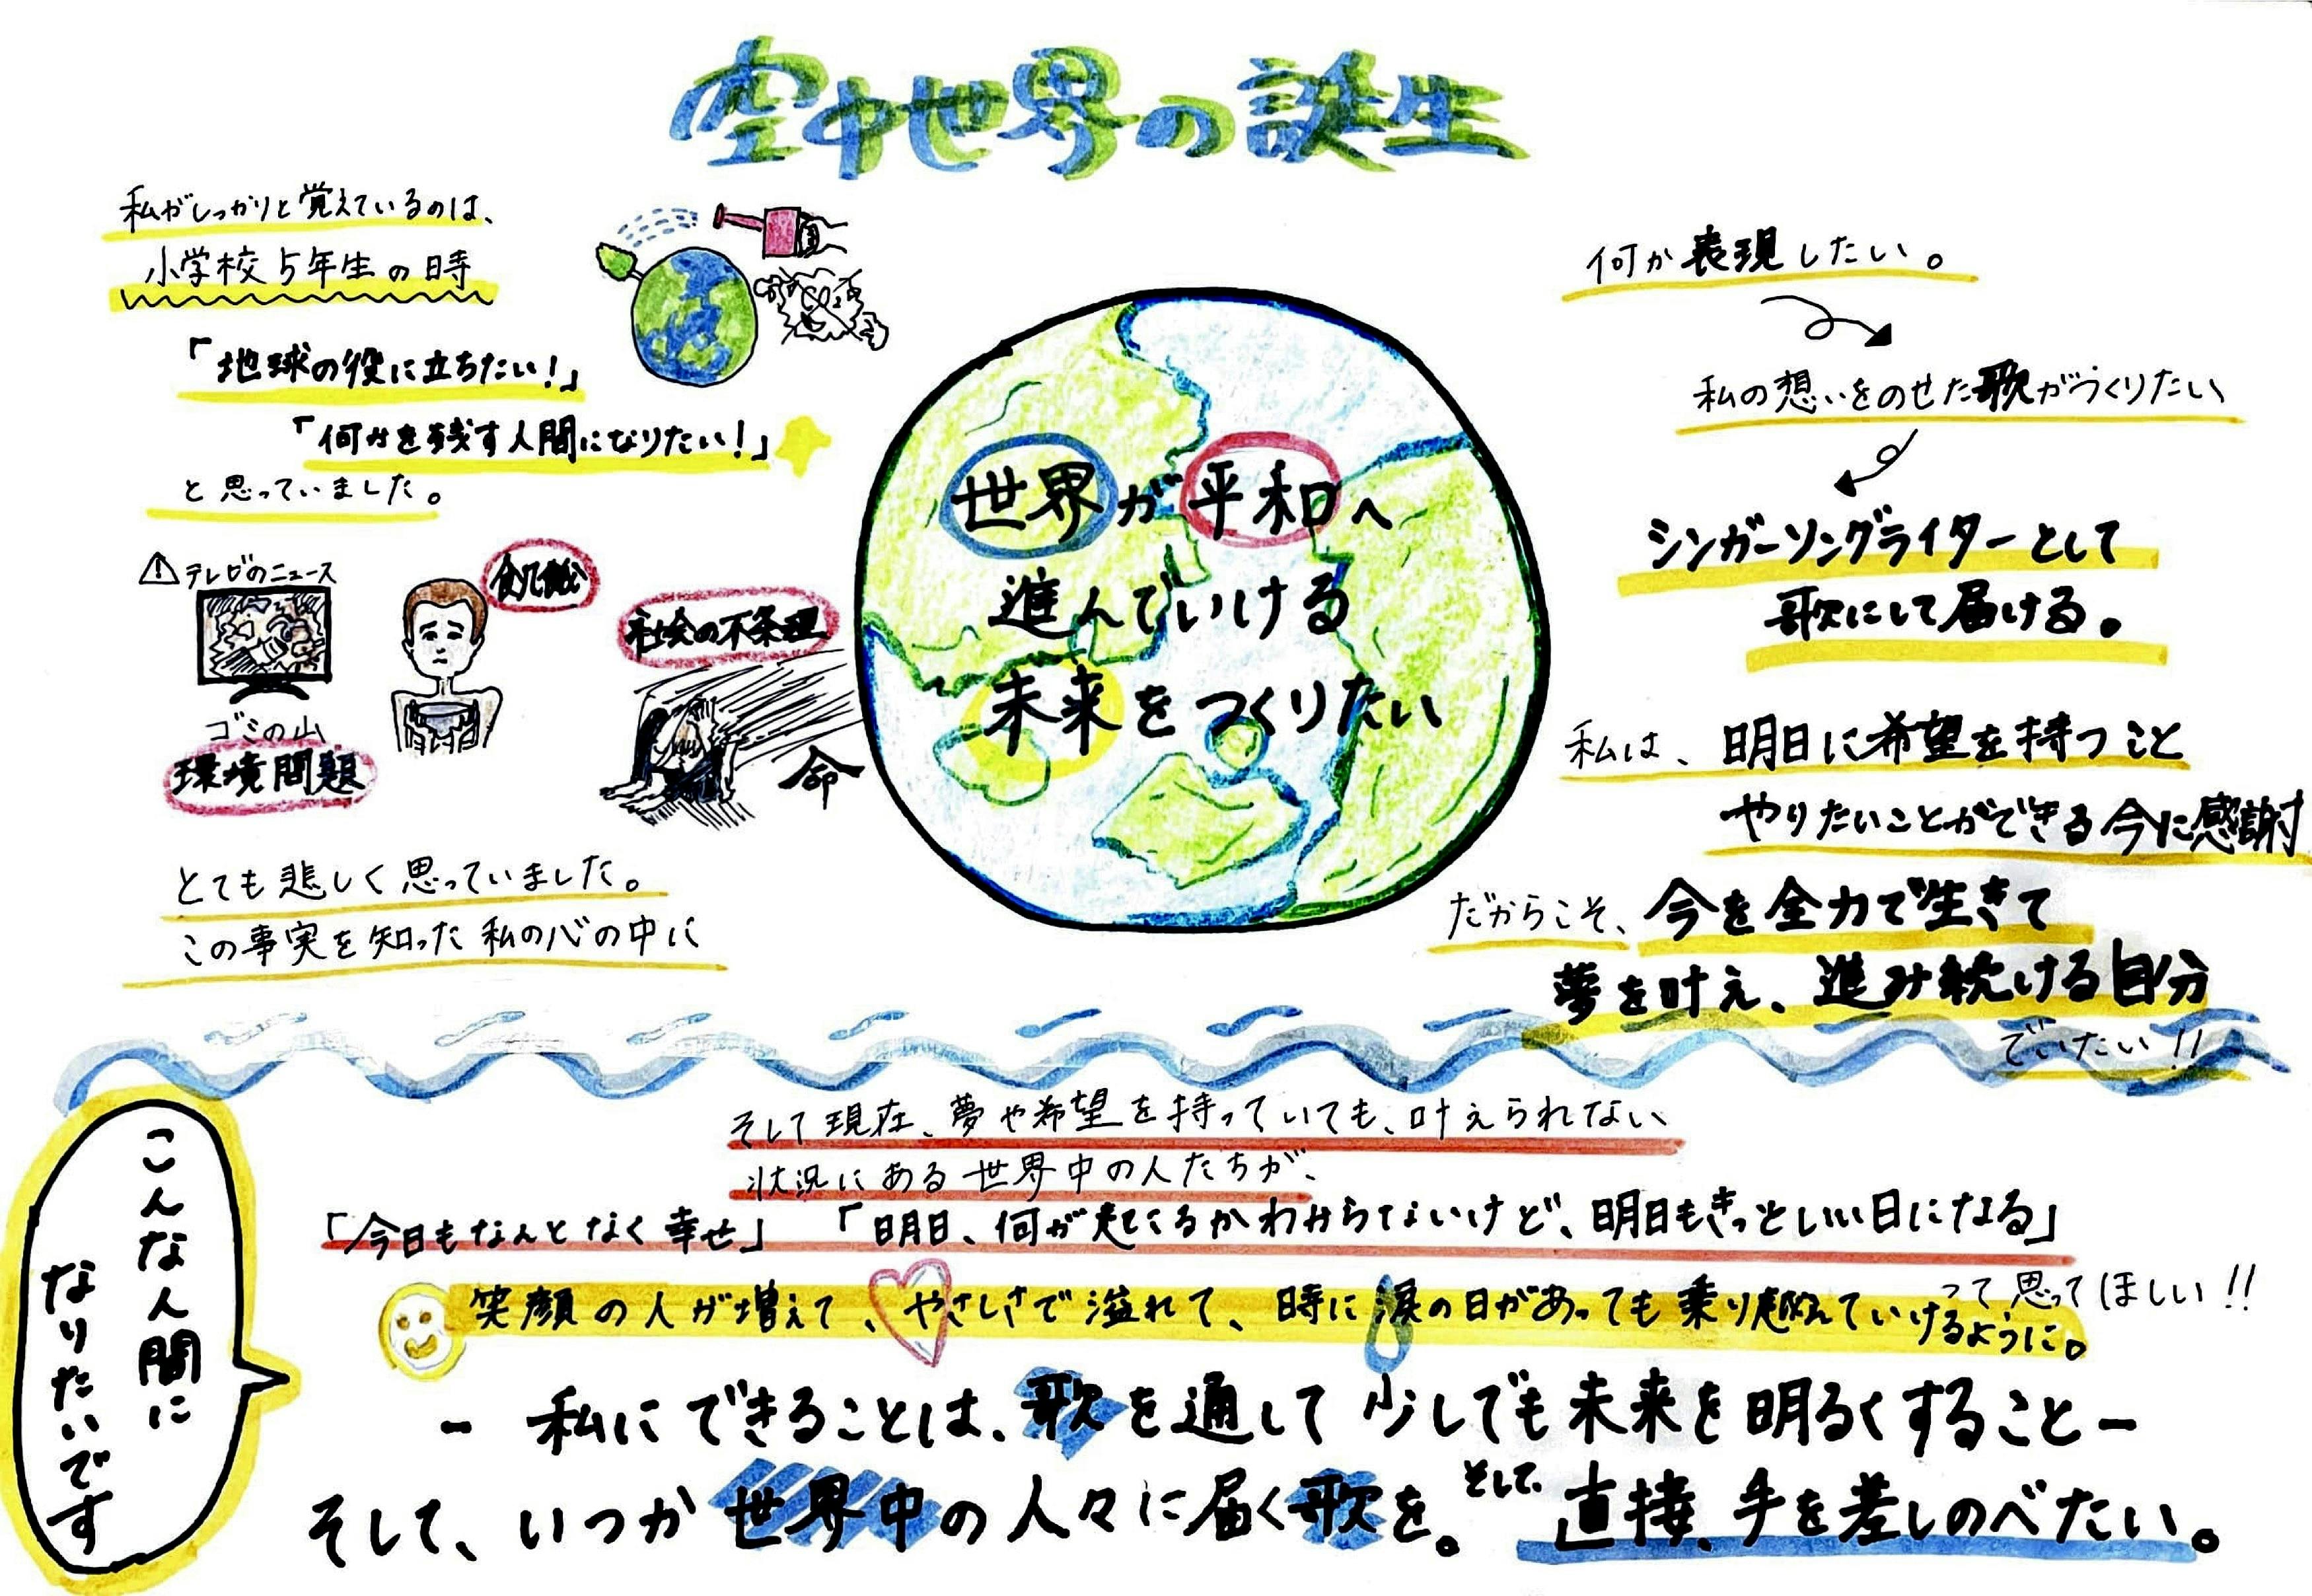 空中世界の誕生
私がしっかりと覚えているのは、
小学校5年生の時
「地球の役に立ちたい！」
「何かを残す人間になりたい！」
と思っていました。
⚠テレビのニュース
ゴミの山
環境問題
飢餓
社会の不条理
命
とても悲しく思っていました。
この事実を知った私の心の中に
世界が平和へ
進んでいける
未来をつくりたい
何か表現したい。
私の想いをのせた歌がつくりたい
シンガーソングライターとして
歌にして届ける。
私は、明日に希望を持つこと
やりたいことができる今に感謝
だからこそ、今を全力で生きて
夢を叶え、進み続ける自分
でいたい!!
こんな人間に
なりたいです
そして現在、夢や希望を持っていても、叶えられない
状況にある世界中の人たちが、
「今日もなんとなく幸せ」「明日、何が起こるかわからないけど、明日もきっといい日になる」
って思ってほしい!!
笑顔の人が増えて、やさしさで溢れて、時に涙の日があっても乗り越えていけるように。
- 私にできることは、歌を通して少しでも未来を明るくすること -
そして、いつか世界中の人々に届く歌を。そして、直接、手を差しのべたい。